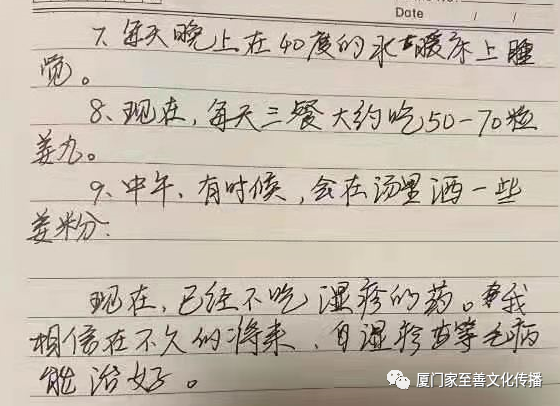 Date / /
7、每天晚上在40度的水暖床上睡
觉。
8、现在,每天三餐大约吃50-70粒
姜丸。
9、中午、有时候,会在汤里洒一些
姜粉.
现在,已经不吃湿疹的药。我
相信在不久的将来,自湿疹等毛病
能治好。
厦门家至善文化传播